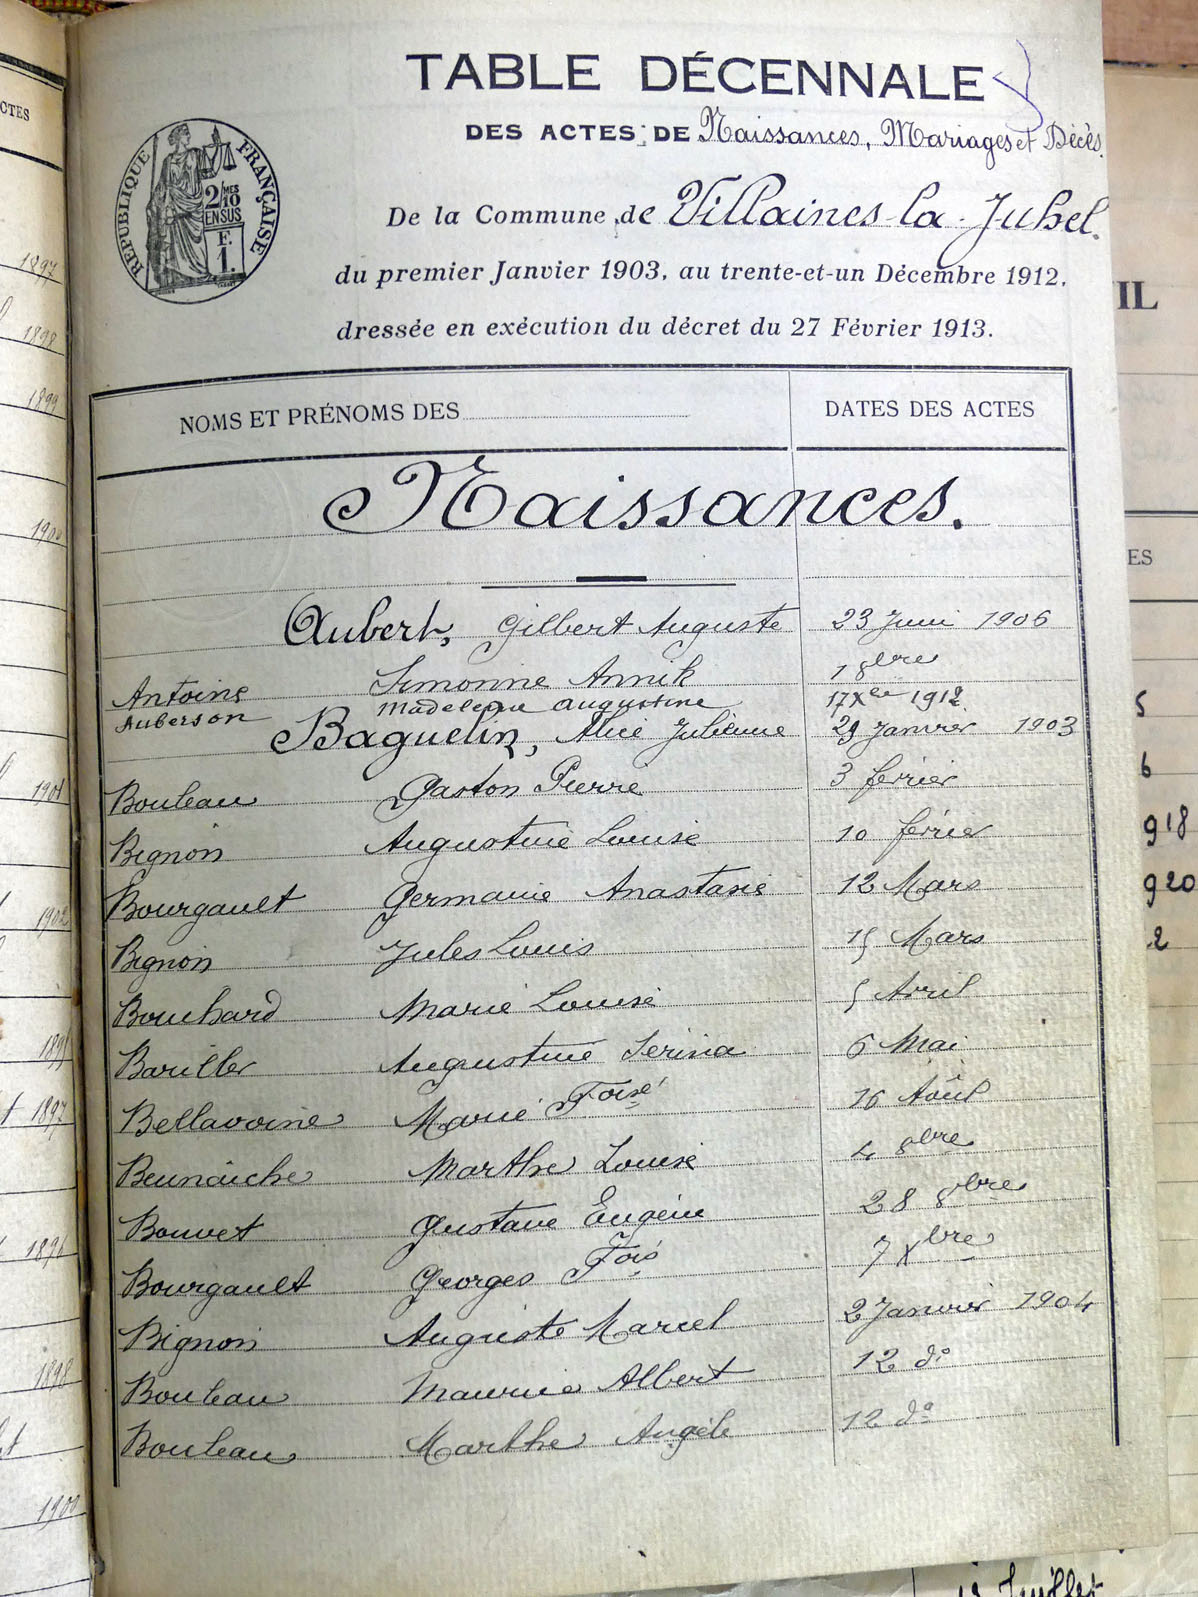 TABLE DÉCENNALE
DES ACTES DE Naissances, Mariages et Décès.
De la Commune de Villaines-la-Juhel.
du premier Janvier 1903, au trente-et-un Décembre 1912,
dressée en exécution du décret du 27 Février 1913.
RÉPUBLIQUE FRANÇAISE
2/10 MES
EN SUS
F.
1.
NOMS ET PRÉNOMS DES DATES DES ACTES
Naissances.
Aubert, Gilbert Auguste 23 Juin 1906
Antoine Simonne Annik 1 8bre
Auberson Madeleine Augustine 17 Xbre 1912
Baguelin, Alice Julienne 29 Janvier 1903
Bouleau Gaston Pierre 3 février
Bignon Augustine Louise 10 février
Bourgault Germaine Anastasie 12 Mars
Bignon Jules Louis 15 Mars
Bouchard Marie Louise 5 Avril
Bariller Augustine Serina 6 Mai
Bellavoine Marie Foise 16 Août
Beunaiche Marthe Louise 4 8bre
Bouvet Gustave Eugène 28 8bre
Bourgault Georges Fois 7 Xbre
Bignon Auguste Marcel 2 Janvier 1904
Bouleau Maurice Albert 12 do
Bouleau Marthe Angèle 12 do
CTES
1897
1898
1899
1900
1901
1902
1897
1898
1900
IL
ES
5
6
918
920
2
Juillet